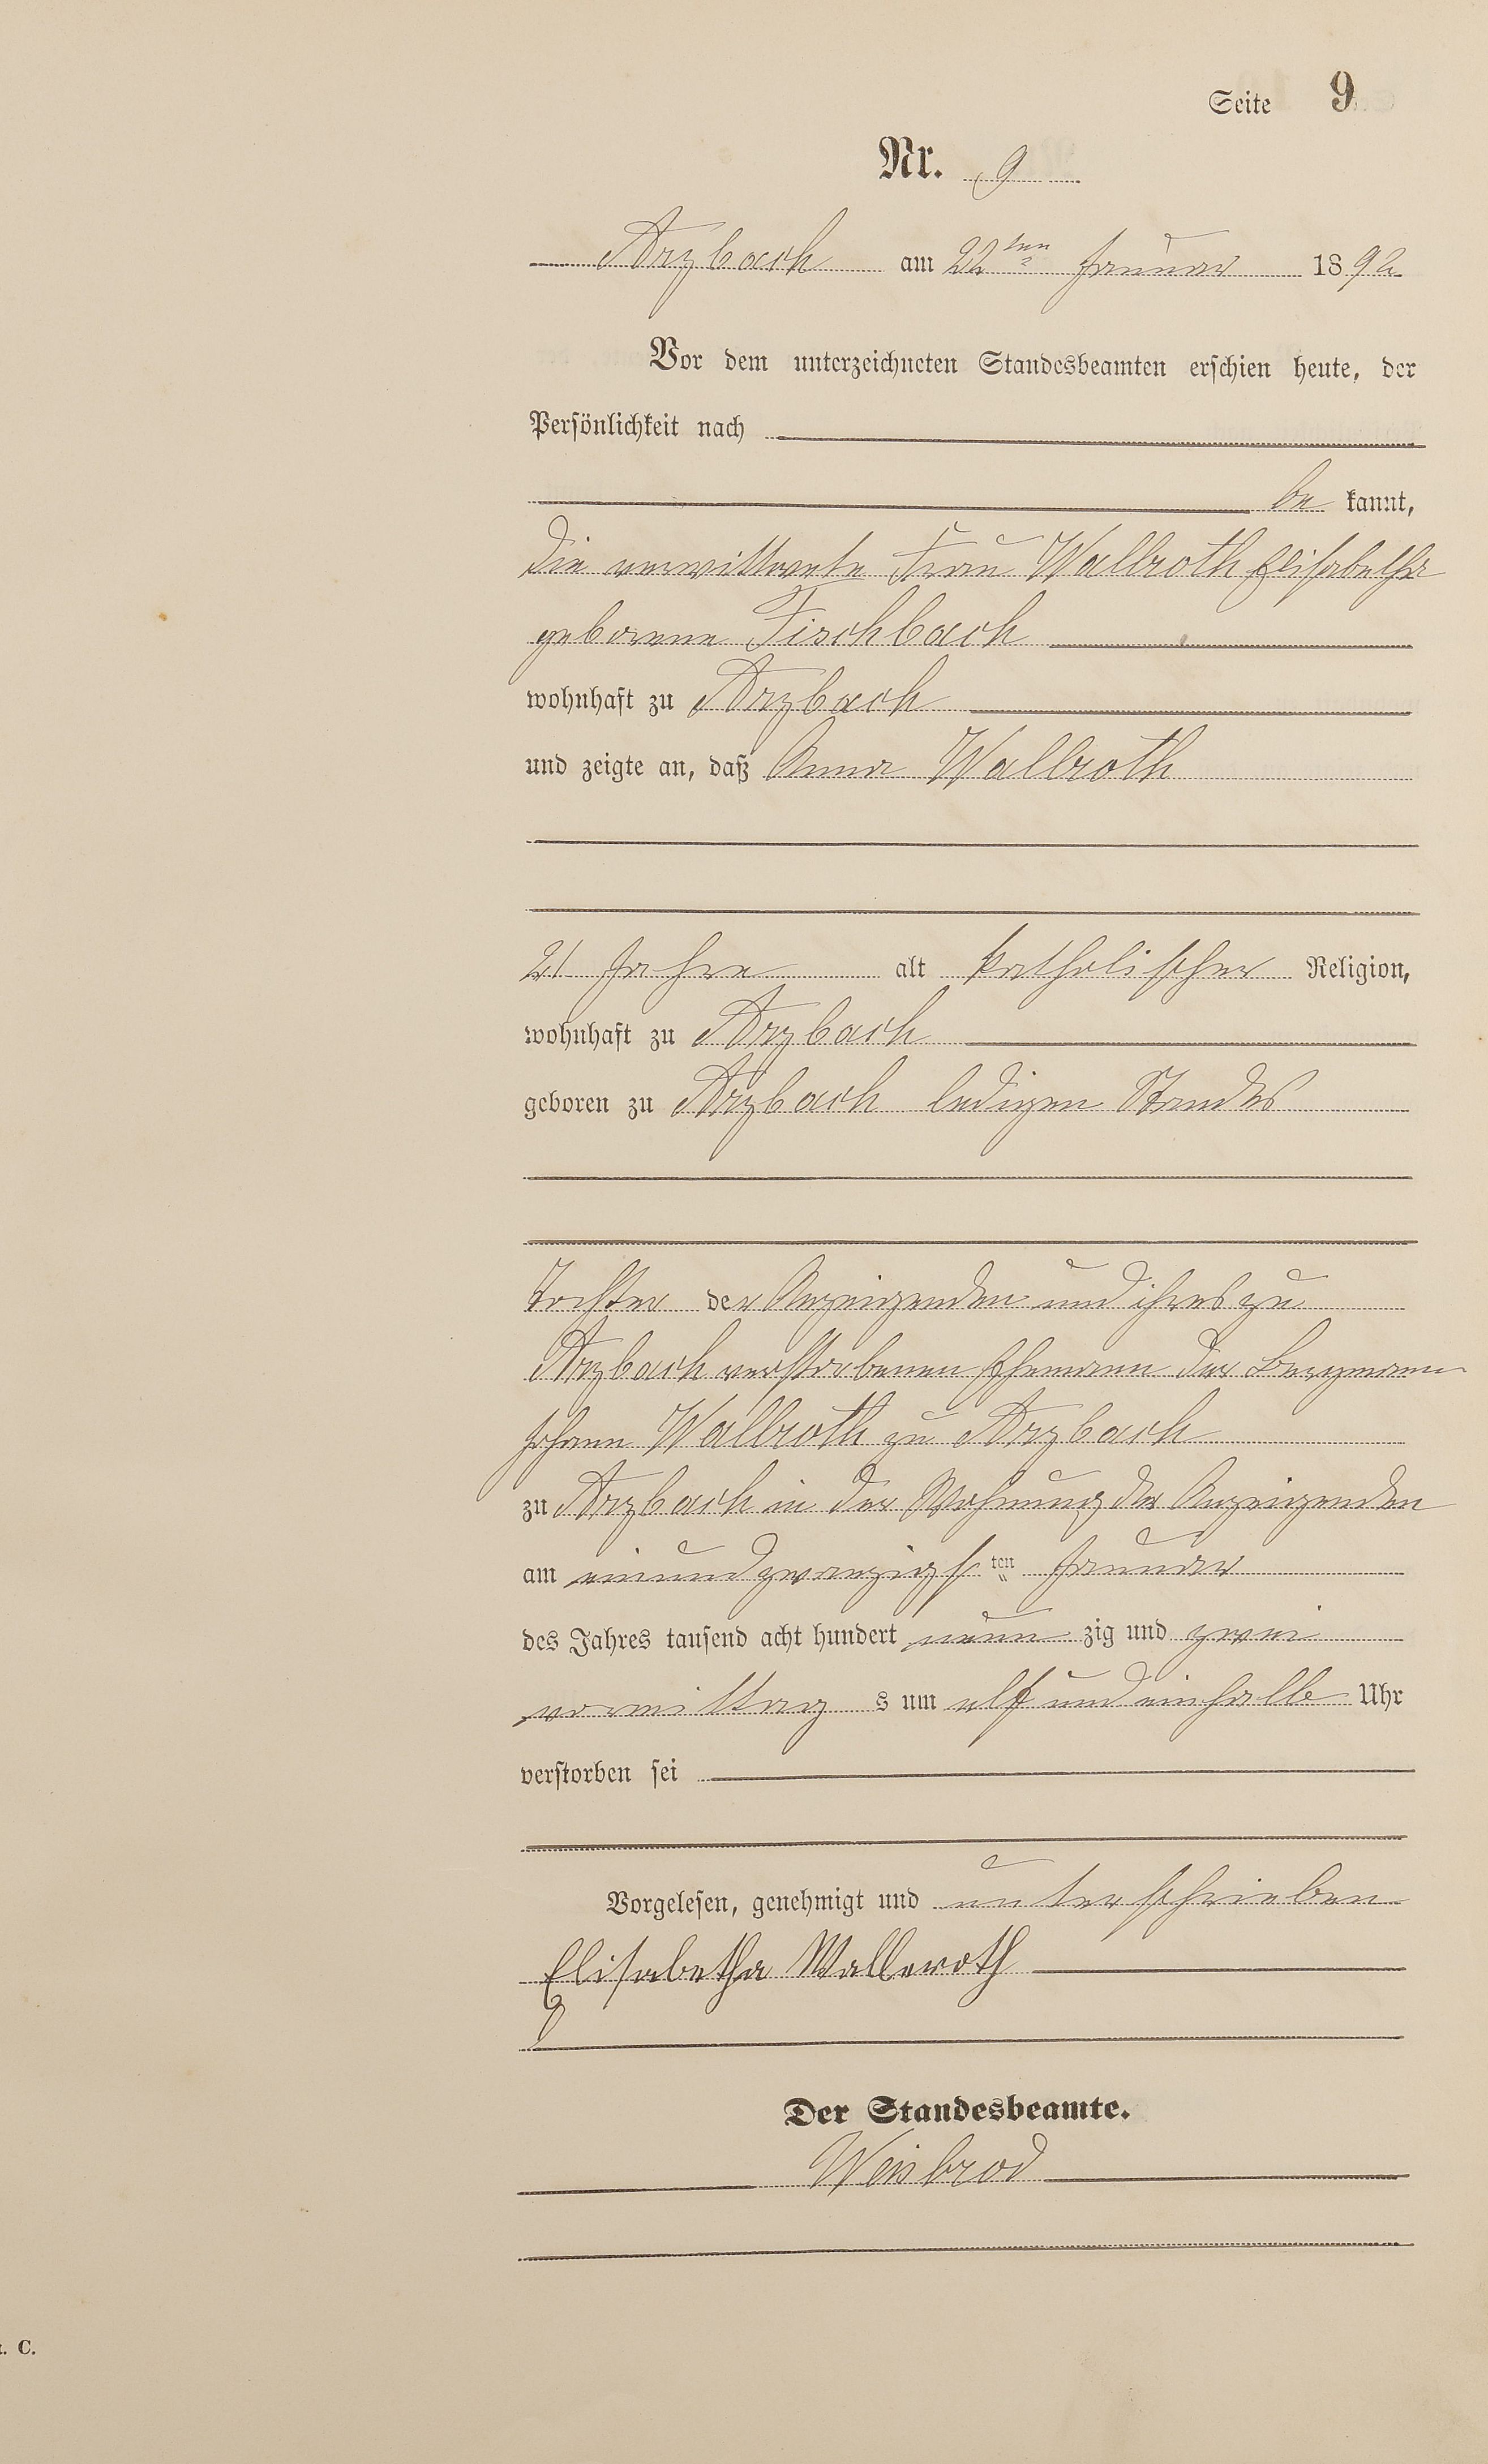 Seite 9
Nr. 9
Arzbach am 22ten Januar 1892
Vor dem unterzeichneten Standesbeamten erschien heute, der
Persönlichkeit nach
be kannt,
die verwittwete Frau Wallroth Elisabetha
geborene Fischbach
wohnhaft zu Arzbach
und zeigte an, daß Anna Wallroth
21 Jahre alt katholischer Religion,
wohnhaft zu Arzbach
geboren zu Arzbach ledigen Standes
Tochter der Anzeigenden und ihres zu
Arzbach verstorbenen Ehemann der Bergmann
Johann Wallroth zu Arzbach
zu Arzbach in der Wohnung der Anzeigenden
am einundzwanzigsten Januar
des Jahres tausend acht hundert neun zig und zwei
vormittag s um elf und einhalb Uhr
verstorben sei
Vorgelesen, genehmigt und unterschrieben
Elisabetha Walleroth
Der Standesbeamte.
Weisbrod
. C.